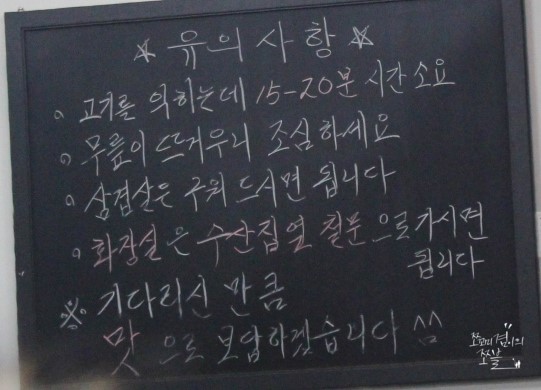 ☆ 유의사항 ☆
o 고기를 익히는데 15-20분 시간소요
o 무릎이 뜨거우니 조심하세요
o 삼겹살은 구워 드시면 됩니다
o 화장실은 수산집 옆 철문으로 가시면
됩니다
※ 기다리신 만큼
맛으로 보답하겠습니다 ^^